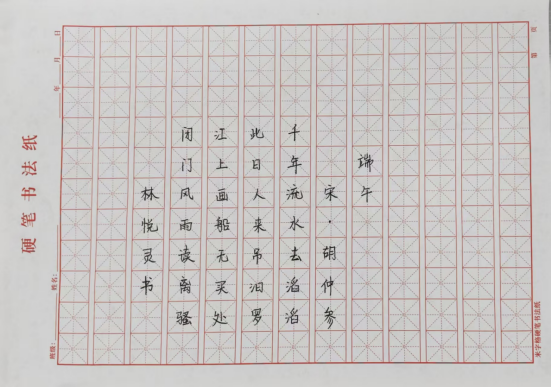 硬笔书法纸
年 月 日
第 页
班级:
姓名:
端午
宋·胡仲参
千年流水去滔滔
此日人来吊汨罗
江上画船无买处
闭门风雨读离骚
林悦灵书
米字格硬笔书法纸